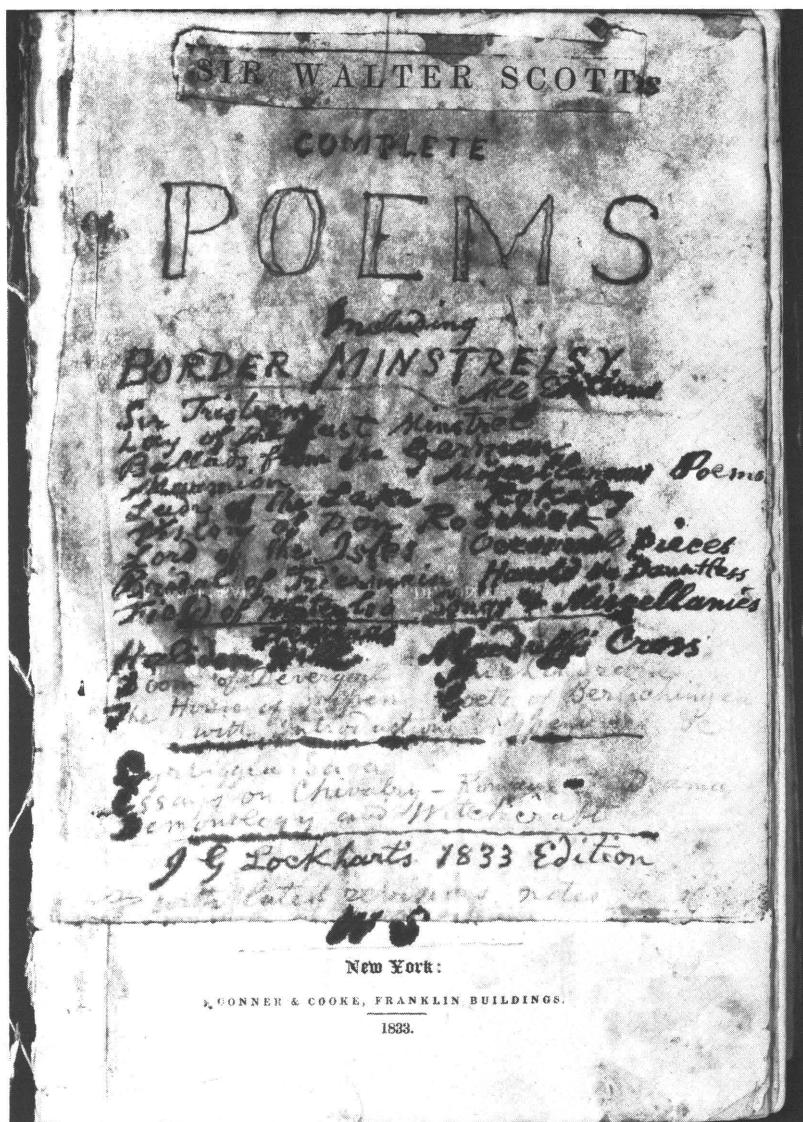 SIR WALTER SCOTT'S
COMPLETE
POEMS
Including
BORDER MINSTRELSY
All
Sir Tristrem
Lay of the Last Minstrel
Ballads from the German
Marmion Miscellaneous Poems
Lady of the Lake Rokeby
Vision of Don Roderick
Lord of the Isles Occasional Pieces
Bridal of Triermain Harold the Dauntless
Field of Waterloo Songs & Miscellanies
Dramas
Halidon Hill Macduff's Cross
Doom of Devergoil
The House of Aspen Goetz of Berlichingen
with introductions Appendices &c
Eyrbiggia Saga
Essays on Chivalry – Romance – Drama
Demonology and Witchcraft
J G Lockhart's 1833 Edition
with latest revisions, notes &c
W S
New York:
CONNER & COOKE, FRANKLIN BUILDINGS.
1833.